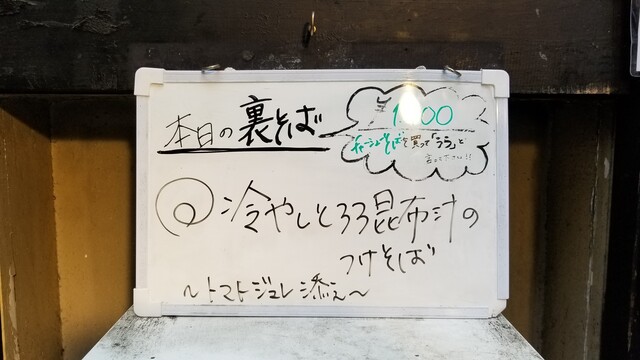 本日の裏そば
¥1100
チャーシューそばを買って「ウラ」と
言って下さい!!
冷やしとろろ昆布汁の
つけそば
〜トマトジュレ添え〜